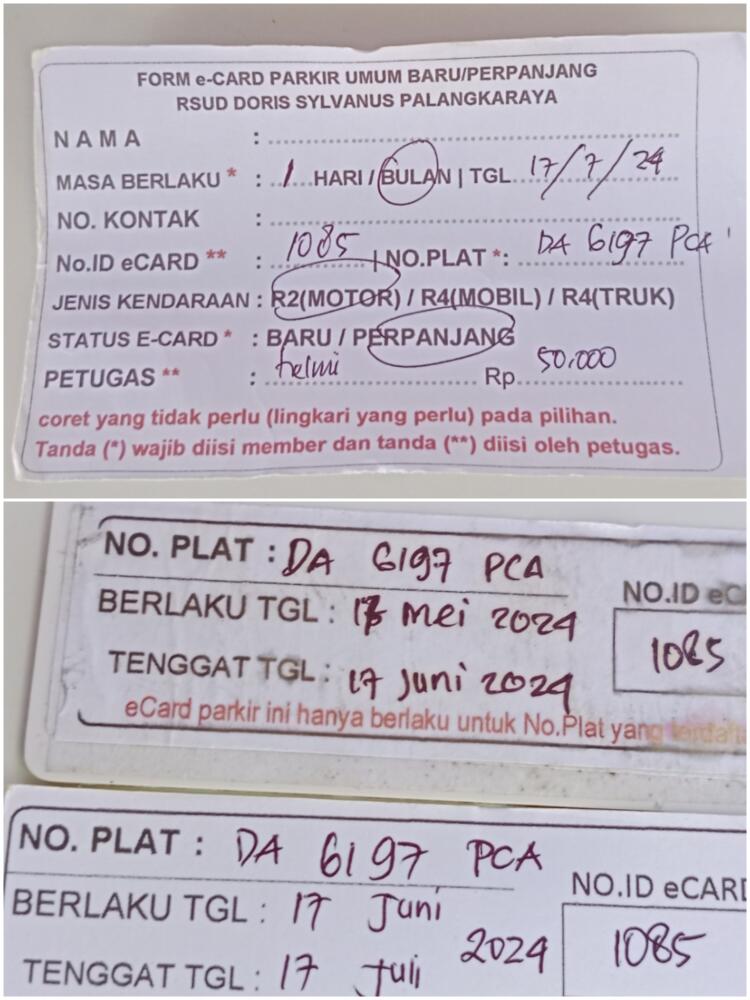 FORM e-CARD PARKIR UMUM BARU/PERPANJANG
RSUD DORIS SYLVANUS PALANGKARAYA
NAMA :
MASA BERLAKU * : 1 HARI / BULAN | TGL. 17/7/24
NO. KONTAK :
No.ID eCARD ** : 1085 | NO.PLAT *: DA 6197 PCA
JENIS KENDARAAN : R2(MOTOR) / R4(MOBIL) / R4(TRUK)
STATUS E-CARD * : BARU / PERPANJANG
PETUGAS ** : helmi Rp. 50.000
coret yang tidak perlu (lingkari yang perlu) pada pilihan.
Tanda (*) wajib diisi member dan tanda (**) diisi oleh petugas.
NO. PLAT : DA 6197 PCA
BERLAKU TGL : 17 Mei 2024
TENGGAT TGL : 17 Juni 2024
NO.ID eC
1085
eCard parkir ini hanya berlaku untuk No.Plat yang
NO. PLAT : DA 6197 PCA
BERLAKU TGL : 17 Juni
TENGGAT TGL : 17 Juli 2024
NO.ID eCARD
1085